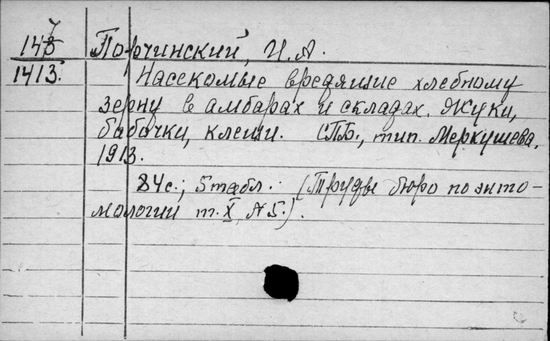 147 Порчинский, И. А.
1413. Насекомые вредящие хлебному
зерну в амбарах и складах. Жуки,
бабочки, клещи. СПБ., тип. Меркушева,
1913.
84с.; 5 табл. (Труды бюро по энто-
мологии т. X, №5.).